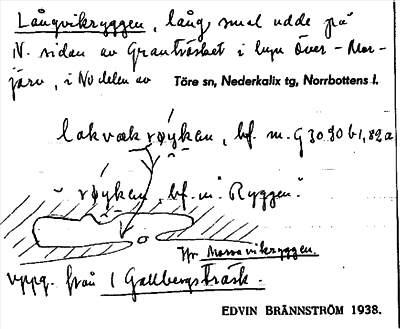 Långvikryggen, lång, smal udde på
N. sidan av Granträsket i byn Över-Mor-
järv, i NV delen av Töre sn, Nederkalix tg, Norrbottens l.
lakvækrøyken, bf. m. G 3090 b1,82a
~ røyken, bf. m. "Ryggen".
Jfr Morravikryggen.
uppg. från 1 Gallbergsträsk.
EDVIN BRÄNNSTRÖM 1938.